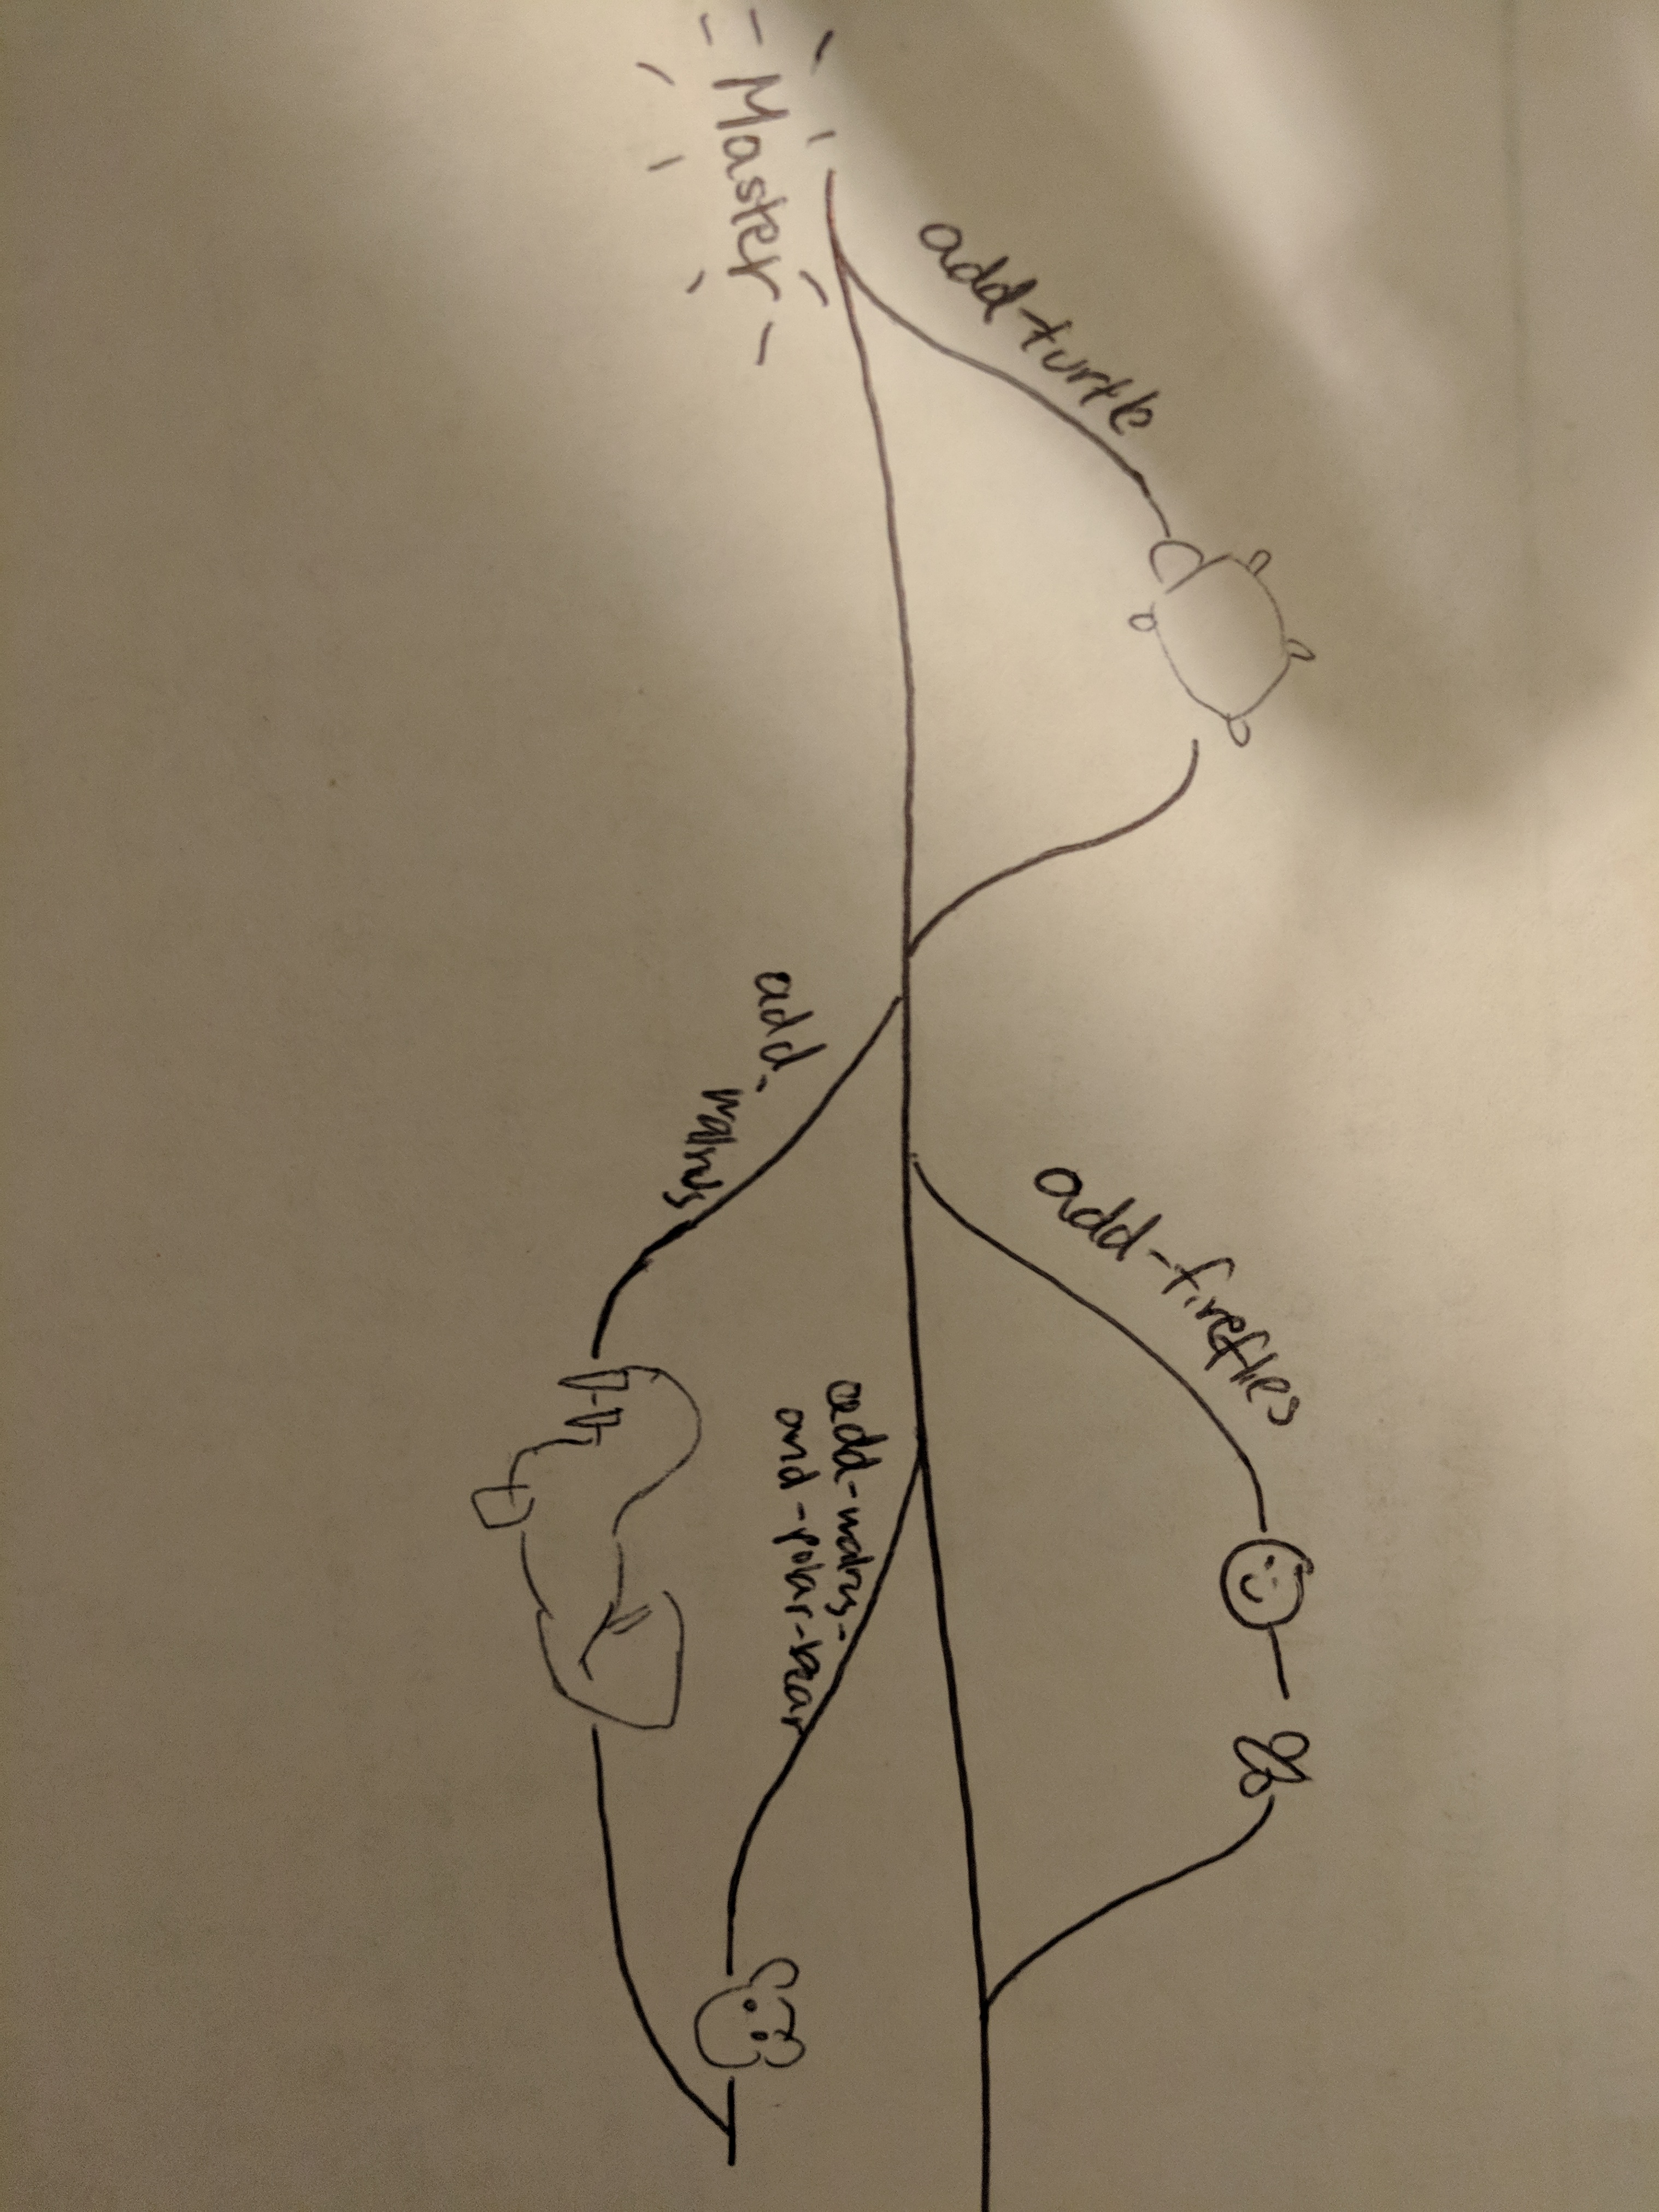 Master
add-turtle
add-
walrus
add-fireflies
add-walrus-
and-polar-bear